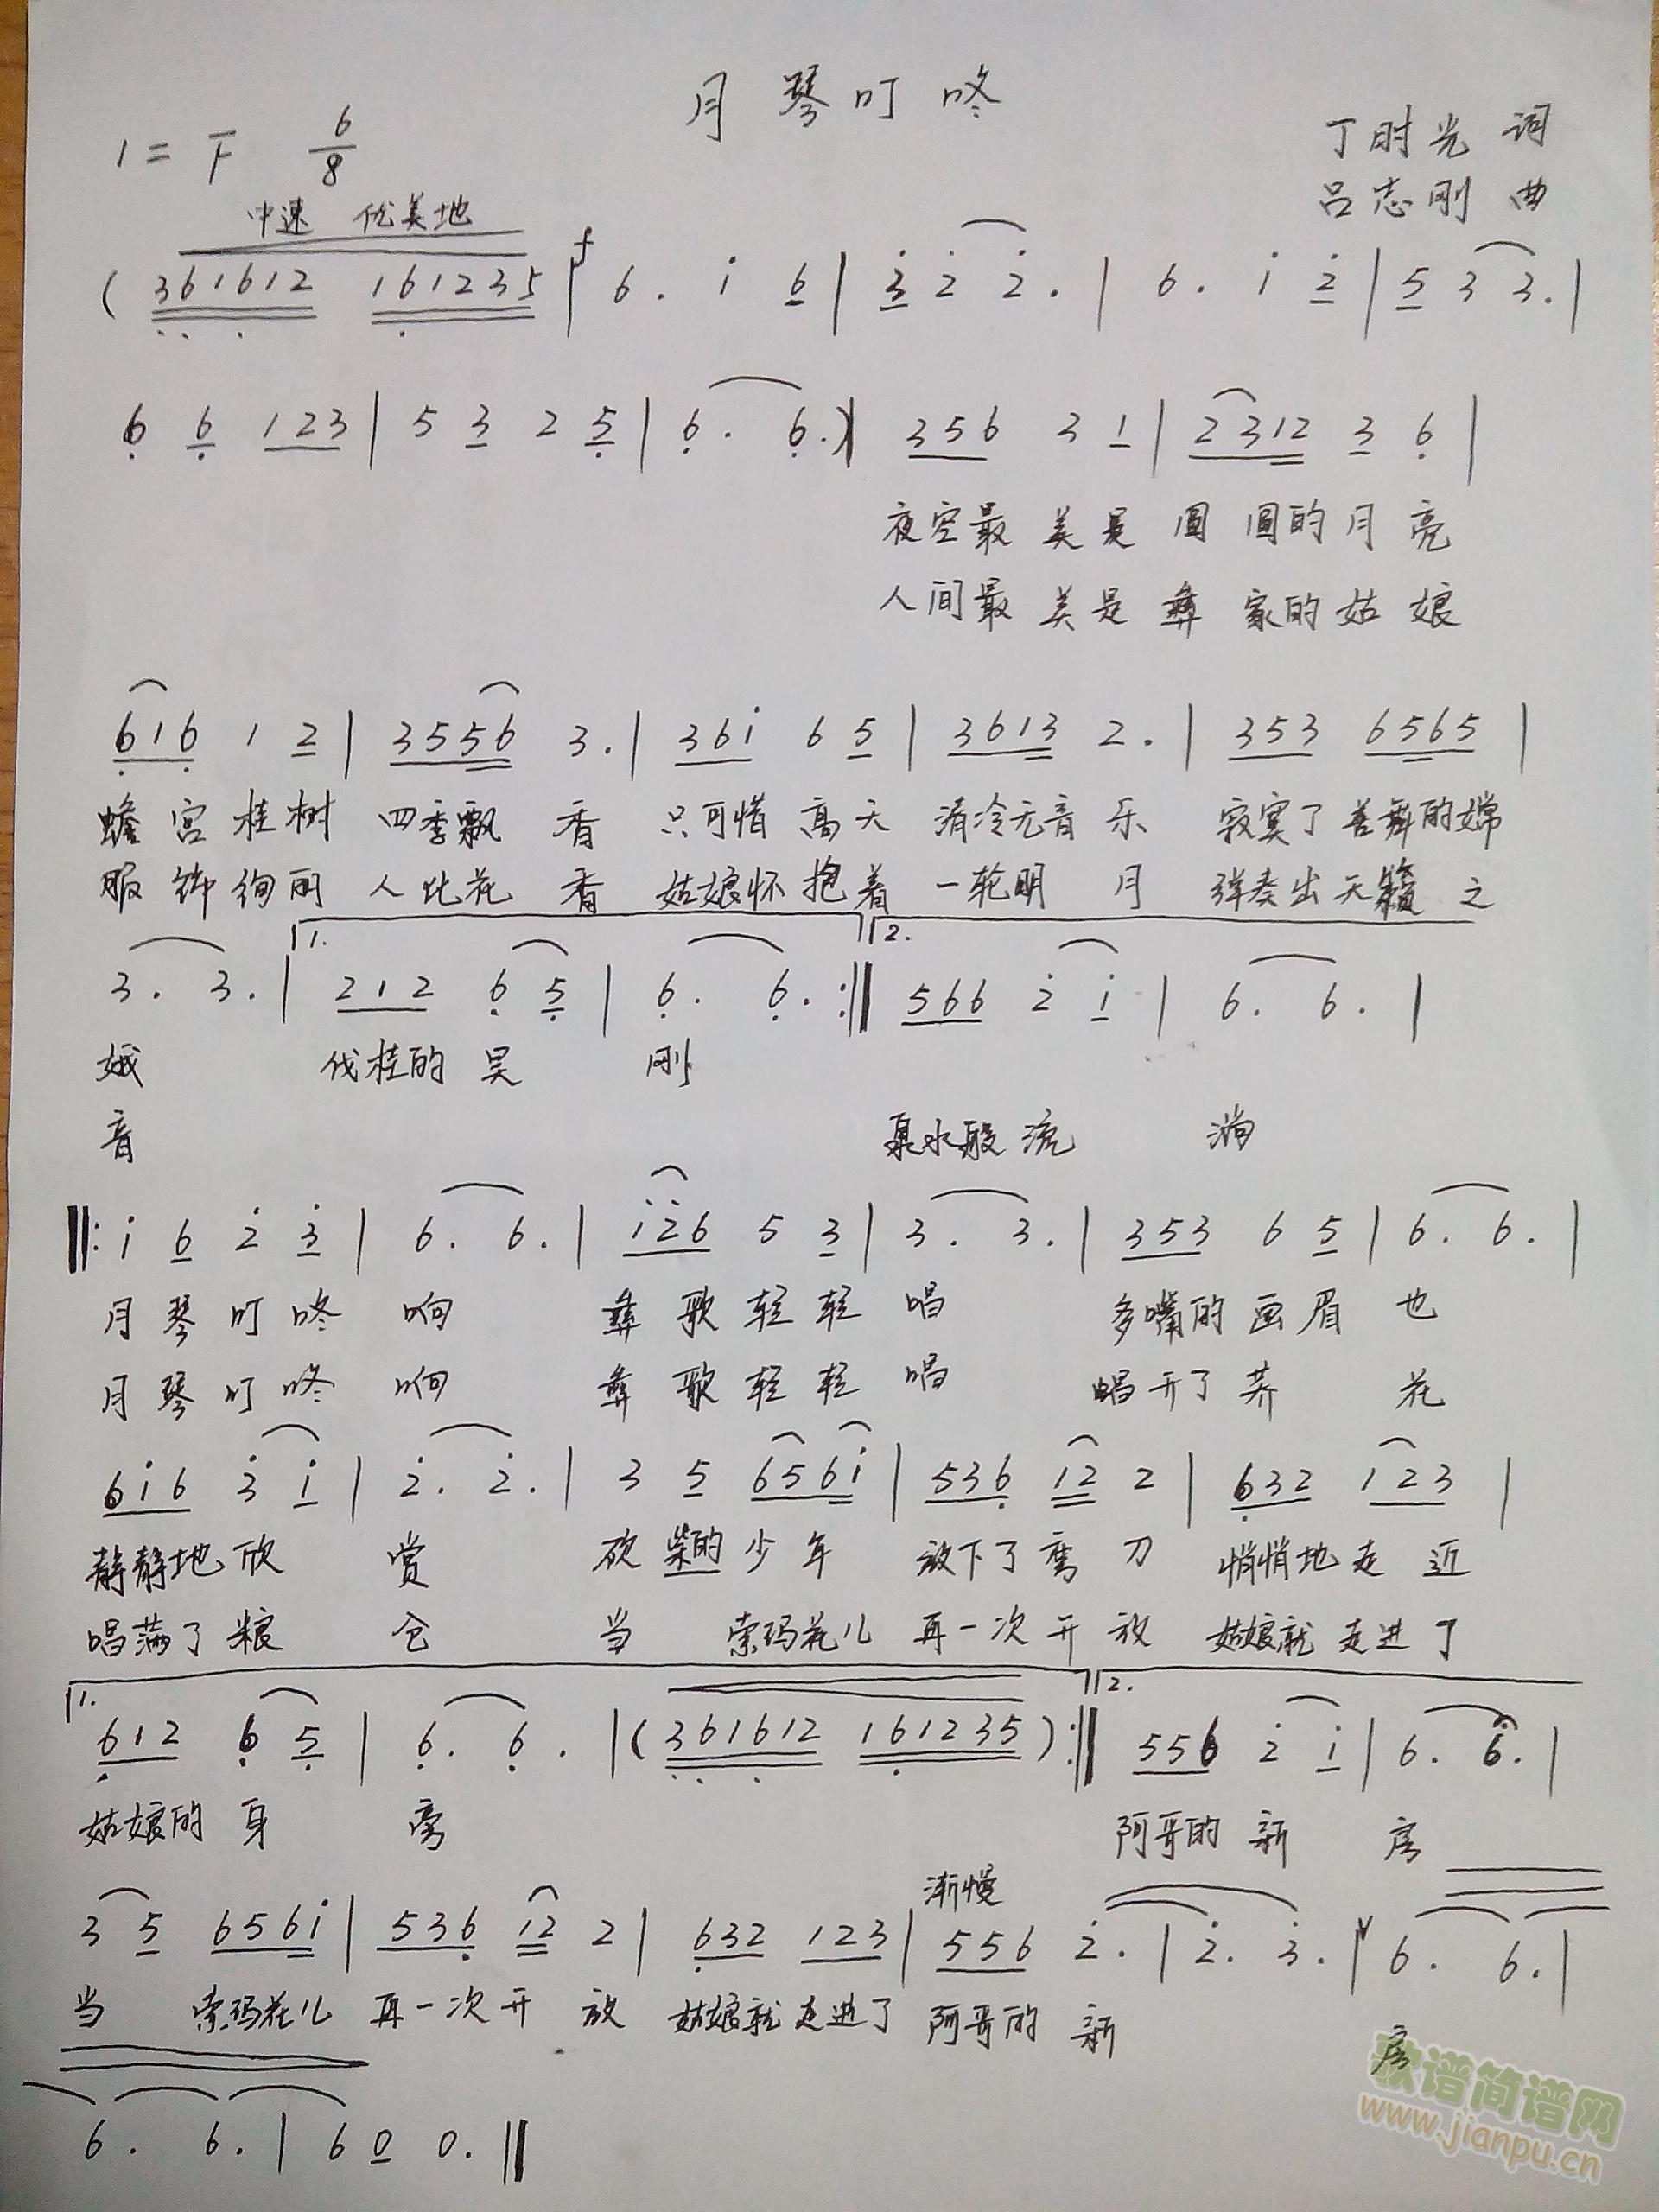 月琴叮咚
1=F 6/8
丁时光 词
吕志刚 曲
中速 优美地
( 361612 161235 | f 6. i 6 | 3 2 2. | 6. i 2 | 5 3 3. |
6 6 123 | 5 3 2 5 | 6. 6.) | 356 3 1 | 2312 3 6 |
夜空最 美是 圆 圆的月 亮
人间最 美是 彝 家的姑 娘
616 1 2 | 3556 3. | 36i 6 5 | 3613 2. | 353 6565 |
蟾宫桂树 四季飘 香 只可惜 高天 清冷无音 乐 寂寞了 善舞的嫦
服饰绚丽 人比花 香 姑娘怀 抱着 一轮明 月 弹奏出 天籁 之
1. 2.
3. 3. | 212 6 5 | 6. 6. :‖ 566 2 i | 6. 6. |
娥 伐桂的 吴 刚
音 泉水般 流 淌
‖: i 6 2 3 | 6. 6. | i26 5 3 | 3. 3. | 353 6 5 | 6. 6. |
月琴叮咚 响 彝歌轻轻 唱 多嘴的画眉 也
月琴叮咚 响 彝歌轻轻 唱 唱开了荞 花
6i6 3 i | 2. 2. | 3 5 656i | 536 12 2 | 632 123 |
静静地欣 赏 砍柴的少年 放下了弯 刀 悄悄地走 近
唱满了粮 仓 当 索玛花儿 再一次开 放 姑娘就走进了
1. 2.
612 6 5 | 6. 6. | ( 361612 161235 ) :‖ 556 2 i | 6. 6. |
姑娘的身 旁 阿哥的 新 房
渐慢
3 5 656i | 536 12 2 | 632 123 | 556 2. | 2. 3. | 6. 6. |
当 索玛花儿 再一次开 放 姑娘就走进了 阿哥的 新 房
6. 6. | 6 0 0. ‖
歌谱简谱网
www.jianpu.cn